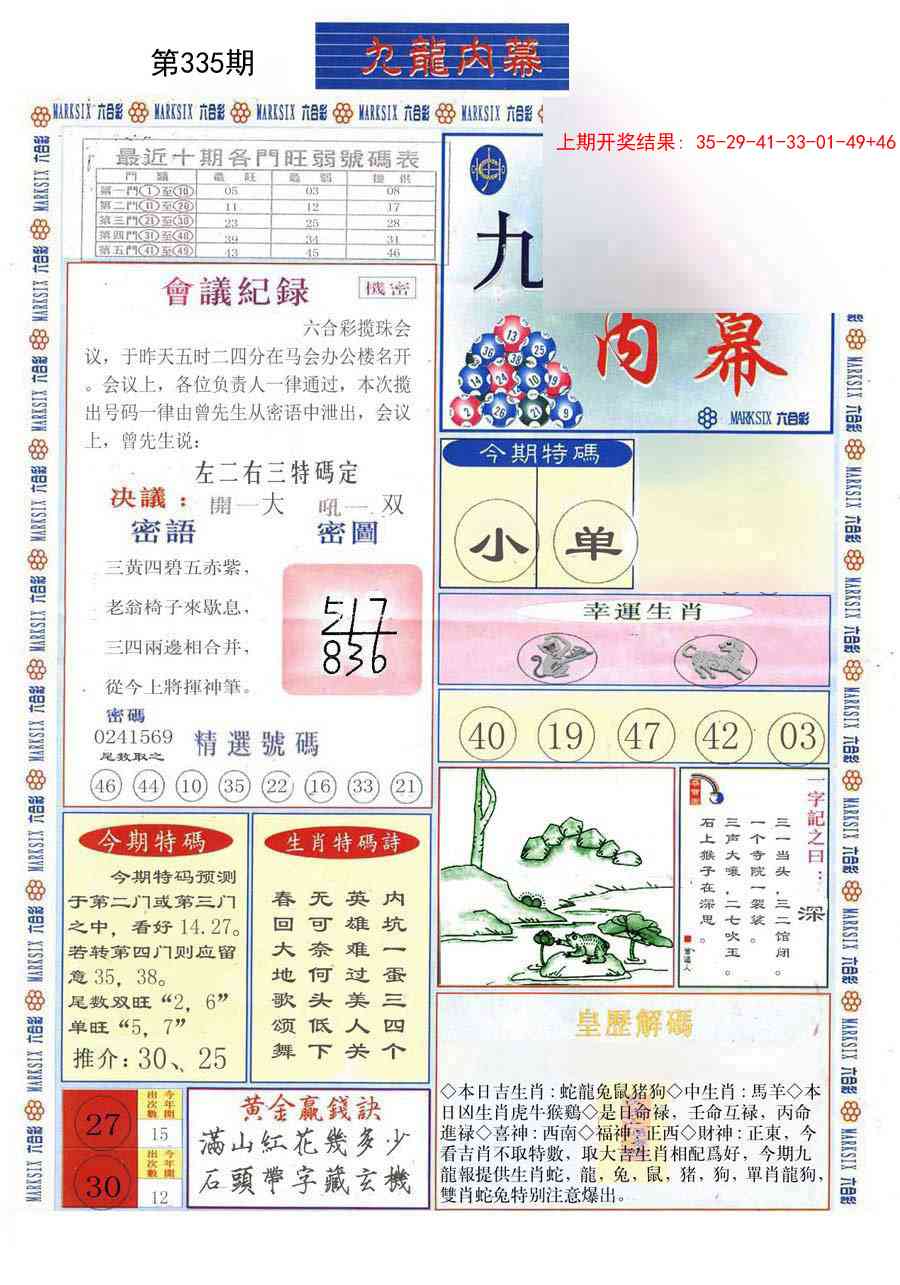 第335期
九龍内幕
MARKSIX 六合彩
上期开奖结果：35-29-41-33-01-49+46
最近十期各門旺弱號碼表
門 類 最 旺 最 弱 提 供
第一門①至⑩ 05 03 08
第二門⑪至⑳ 11 12 17
第三門㉑至㉚ 23 25 28
第四門㉛至㊵ 39 34 31
第五門㊶至㊾ 43 45 46
會議紀録
機密
六合彩搅珠会
议，于昨天五时二四分在马会办公楼名开
。会议上，各位负责人一律通过，本次搅
出号码一律由曾先生从密语中泄出，会议
上，曾先生说：
左二右三特碼定
决議： 開一大 吼一 双
密語
密圖
三黄四碧五赤紫，
老翁椅子來歇息，
三四兩邊相合并，
從今上將揮神筆。
517
836
密碼
0241569
尾数取之
精選號碼
46 44 10 35 22 16 33 21
九
内幕
13
36 38 25
14 24 10 19
2 26 21 9
MARKSIX 六合彩
今期特碼
小 单
幸運生肖
40 19 47 42 03
一字記之曰：深
三一当头，三二馆闭。
一个寺院一袈裟。
三声大嚎，二七吠王。
石上猴子在深思。
今期特碼
今期特码预测
于第二门或第三门
之中，看好 14.27。
若转第四门则应留
意 35，38。
尾数双旺“2，6”
单旺“5，7”
推介：30、25
生肖特碼詩
内坑一蛋三四个
英雄难过美人关
无可奈何头低下
春回大地歌颂舞
皇歷解碼
◇本日吉生肖：蛇龍兔鼠猪狗◇中生肖：馬羊◇本
日凶生肖虎牛猴鷄◇是日命禄，壬命互禄，丙命
進禄◇喜神：西南◇福神：正西◇財神：正東，今
看吉肖不取特數，取大吉生肖相配爲好，今期九
龍報提供生肖蛇，龍，兔，鼠，猪，狗，單肖龍狗，
雙肖蛇兔特别注意爆出。
27
今年開出次數
15
30
今年開出次數
12
黄金贏錢訣
滿山紅花幾多少
石頭帶字藏玄機